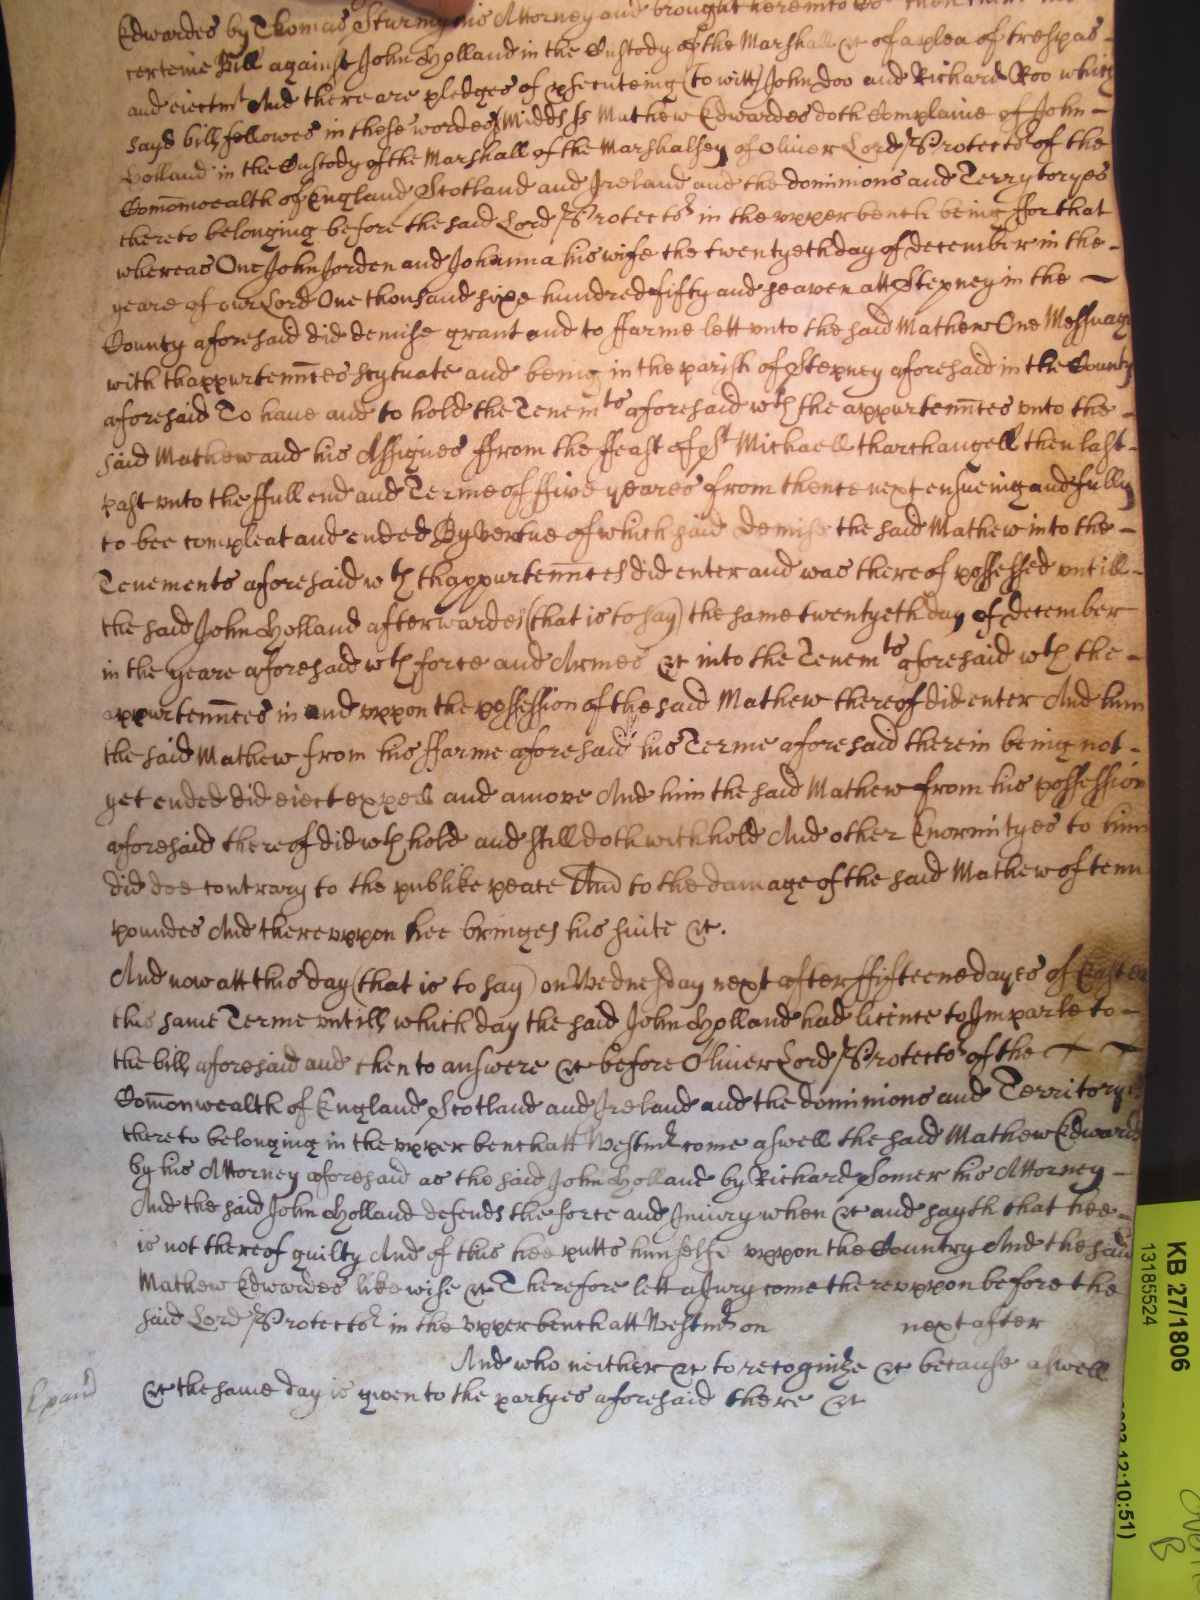 Edwardes by Thomas Sturmy his Attorney and brought here into
certeine Bill against John Holland in the Custody of the Marshall &c of a plea of trespas -
and eiectmt And there are pledges of psecuteing (to witt) John Doo and Richard Roo which
sayd bill followes in these wordes Midds ss Mathew Edwardes doth Complaine of John -
Holland in the Custody of the Marshall of the Marshalsey of Oliver Lord Protector of the
Comonwealth of England Scotland and Ireland and the dominions and Terrytoryes
thereto belonging before the said Lord Protector in the vpper bench being ffor that
whereas One John Jorden and Johanna his wife the twentyeth day of december in the -
yeare of our Lord One thousand sixe hundred fifty and seaven att Stepney in the -
County aforesaid did demise grant and to ffarme lett vnto the said Mathew One Messuage
with thappurtennces scytuate and being in the parish of Stepney aforesaid in the County
aforesaid To have and to hold the Tenemts aforesaid wth the appurtennces vnto the -
said Mathew and his Assignes ffrom the ffeast of St Michaell tharchangell then last -
past vnto the ffull end and Terme of ffive yeares from thence next ensueing and fully
to bee compleat and ended By vertue of which said demise the said Mathew into the -
Tenements aforesaid wth thappurtennces did enter and was thereof possessed vntill -
the said John Holland afterwardes (that is to say) the same twentyeth day of december
in the yeare aforesaid wth force and Armes &c into the Tenemts aforesaid wth the -
appurtennces in and vppon the possession of the said Mathew thereof did enter And him
the said Mathew from his ffarme aforesaid his Terme aforesaid therein being not -
yet ended did eiect expell and amove And him the said Mathew from his possession
aforesaid thereof did wth hold and still doth withhold And other Enormityes to him
did doe contrary to the publike peace And to the damage of the said Mathew of tenn
poundes And therevppon hee bringes his suite &c.
And now att this day (that is to say) on Wednesday next after ffifteene dayes of Easter
this same Terme vntill which day the said John Holland had licence to Imparle to -
the bill aforesaid and then to answere &c before Oliver Lord Protector of the - -
Comonwealth of England Scotland and Ireland and the dominions and Territoryes
thereto belonging in the vpper bench att Westmr come aswell the said Mathew Edwardes
by his Attorney aforesaid as the said John Holland by Richard Somer his Attorney -
And the said John Holland defends the force and Iniury when &c and sayth that hee -
is not thereof guilty And of this hee putts himselfe vppon the Country And the said
Mathew Edwardes likewise &c Therefore lett a Jury come therevppon before the
said Lord Protector in the vpper bench att Westmr on next after
And who neither &c to recognize &c because aswell
&c the same day is given to the partyes aforesaid there &c
KB 27/1806
13185524
12:10:51)